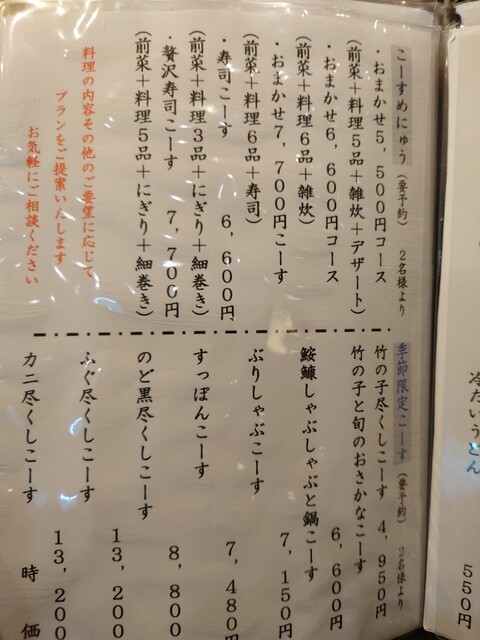 こーすめにゅう（要予約）２名様より
・おまかせ５,５００円コース
（前菜＋料理５品＋雑炊＋デザート）
・おまかせ６,６００円コース
（前菜＋料理６品＋雑炊）
・おまかせ７,７００円こーす
（前菜＋料理６品＋寿司）
・寿司こーす　６,６００円
（前菜＋料理３品＋にぎり＋細巻き）
・贅沢寿司こーす　７,７００円
（前菜＋料理５品＋にぎり＋細巻き）
料理の内容その他のご要望に応じて
プランをご提案いたします
お気軽にご相談ください
季節限定こーす（要予約）２名様より
竹の子尽くしこーす　４,９５０円
竹の子と旬のおさかなこーす　６,６００円
鮟鱇しゃぶしゃぶと鍋こーす　７,１５０円
ぶりしゃぶこーす　７,４８０円
すっぽんこーす　８,８００
のど黒尽くしこーす　１３,２００
ふぐ尽くしこーす　１３,２００
カニ尽くしこーす　時価
冷たいうどん
５５０円